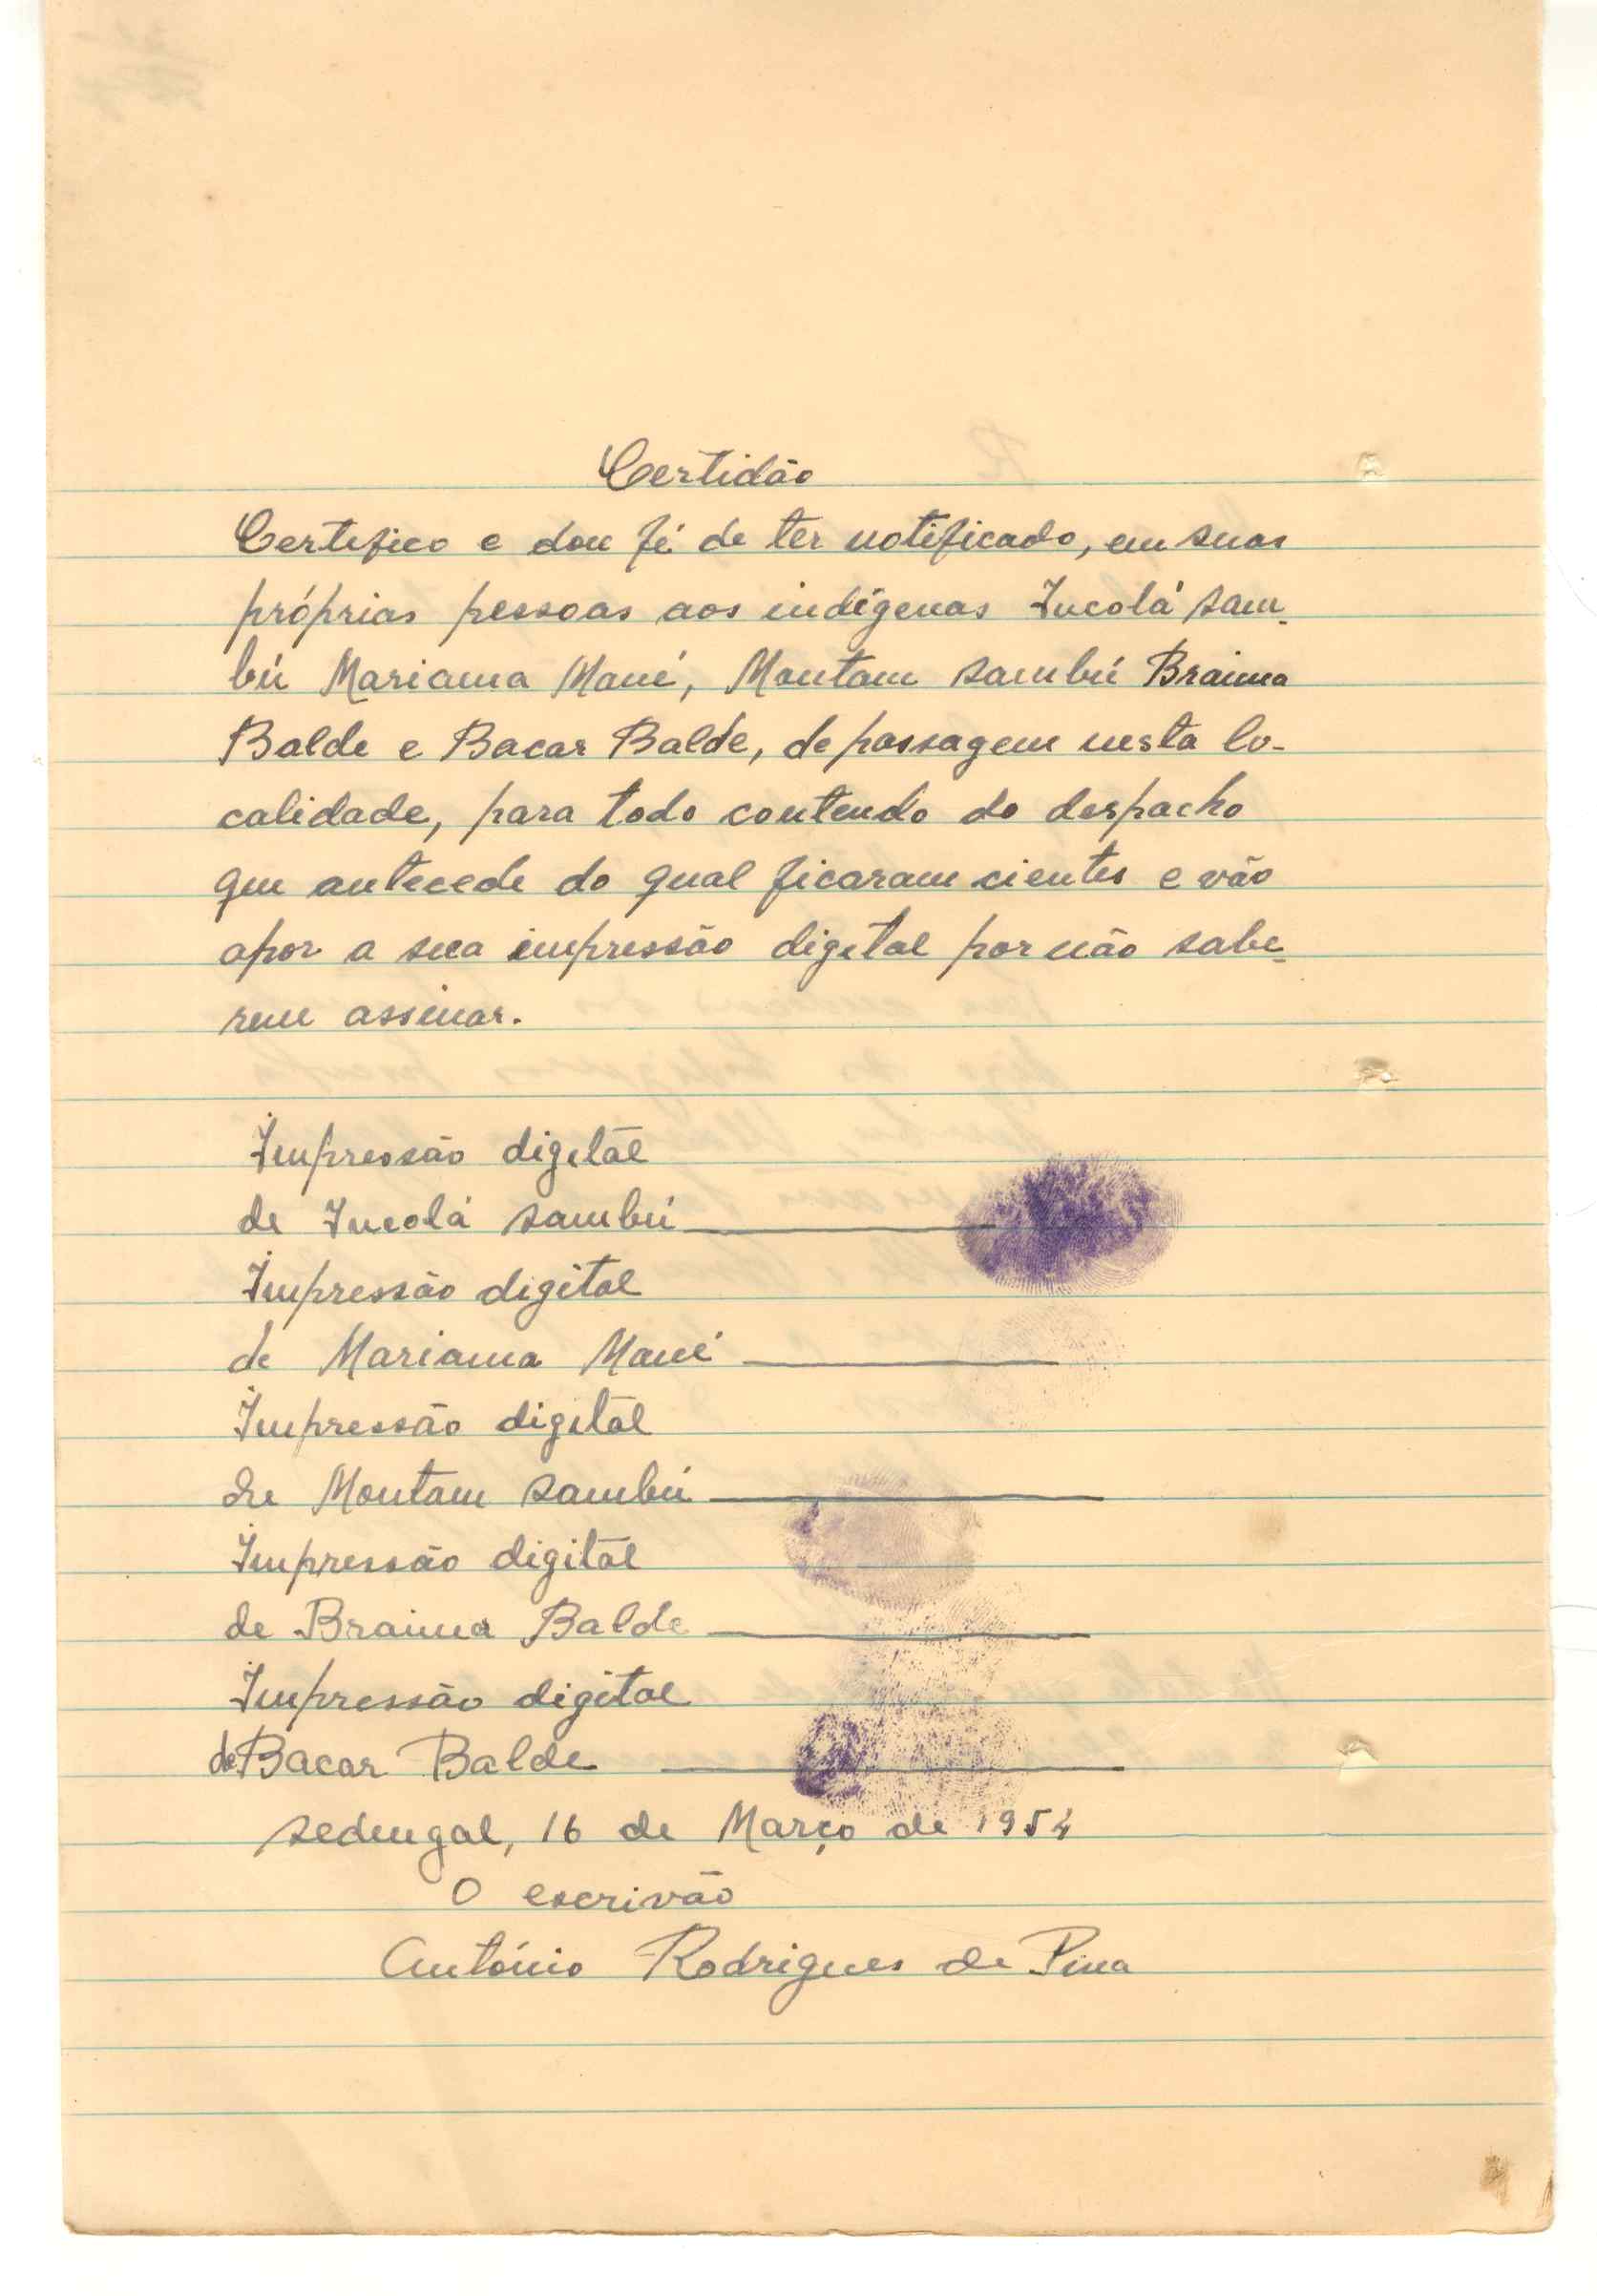 Certidão
Certifico e dou fé de ter notificado, em suas
próprias pessoas aos indígenas Incolá Sam-
bú Mariama Mané, Moutam Sambú Braima
Balde e Bacar Balde, de passagem nesta lo-
calidade, para todo contendo do despacho
que antecede do qual ficaram cientes e vão
apor a sua impressão digital por não sabe-
rem assinar.
Impressão digital
de Incolá Sambú
Impressão digital
de Mariama Mané
Impressão digital
de Moutam Sambú
Impressão digital
de Braima Balde
Impressão digital
de Bacar Balde
Sedengal, 16 de Março de 1954
O escrivão
António Rodrigues de Pina